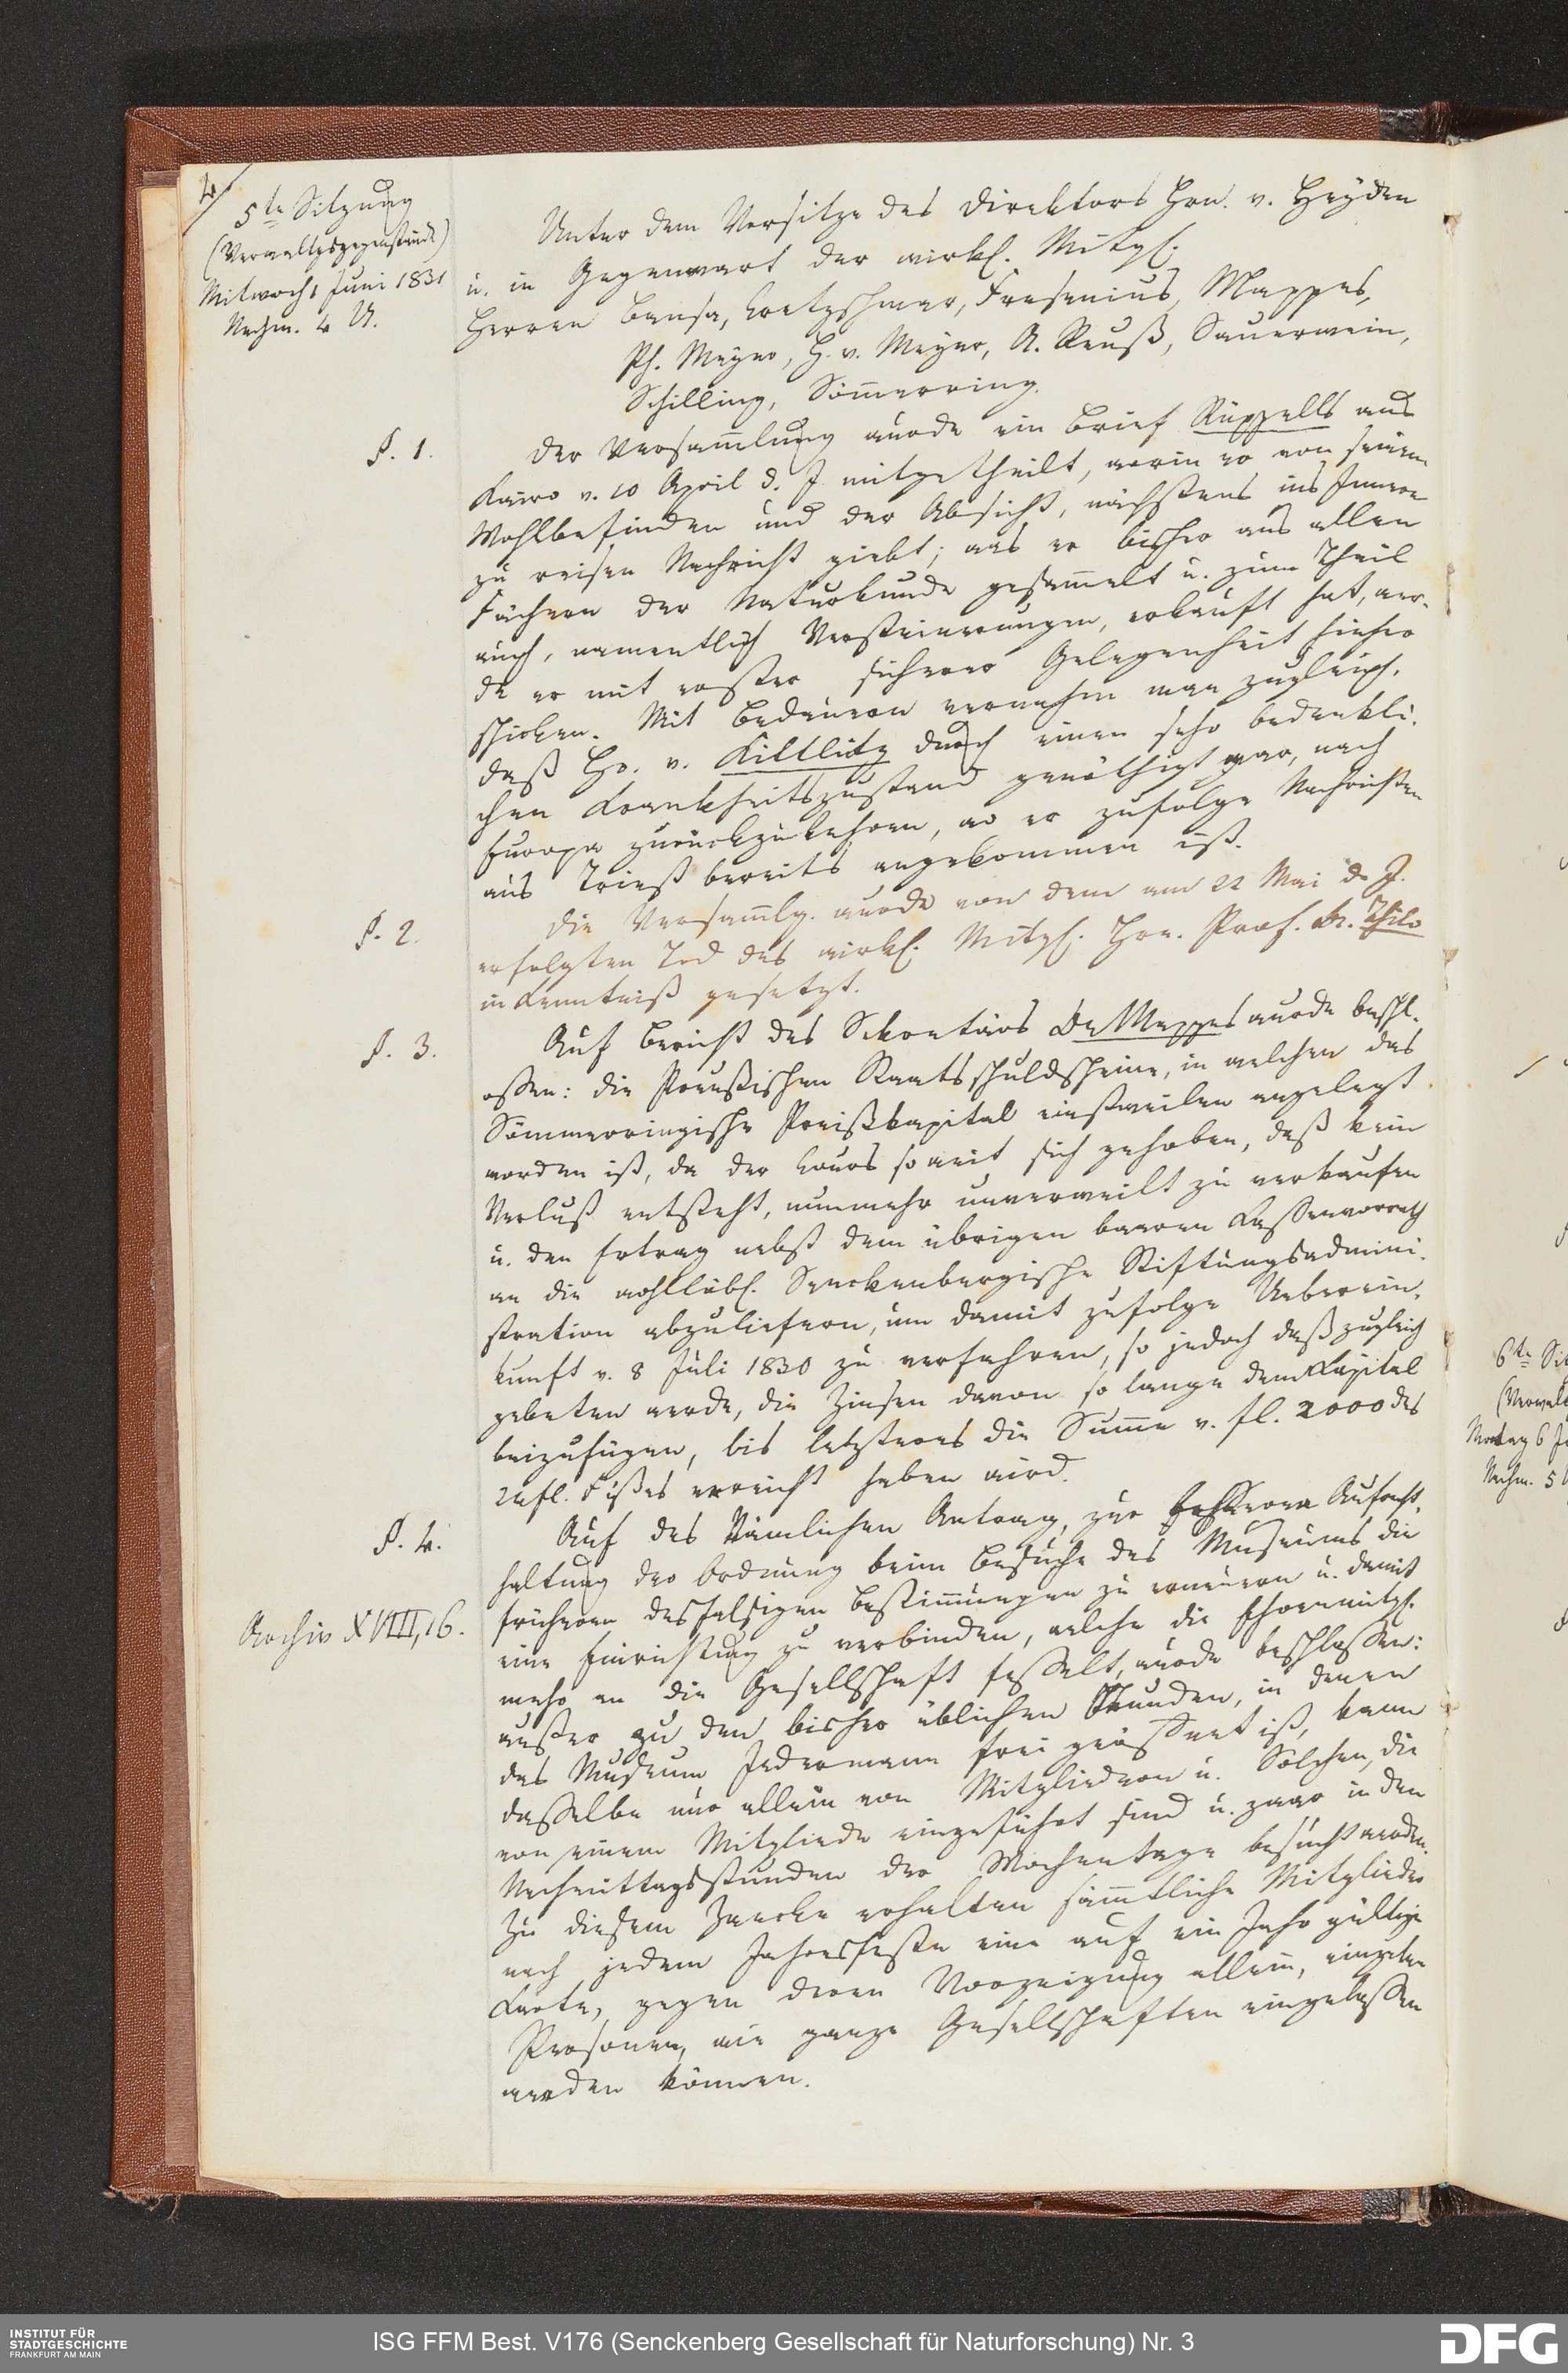 4/
5te Sitzung
(Verwaltgsgegenstände)
Mitwoch 1 Juni 1831
Nachm. 4 U.
Unter dem Vorsitze des Direktors Hrn. v. Heyden
u. in Gegenwart der wirkl. Mitgl.
Herren Bansa, Cretzschmar, Fresenius, Mappes,
Ph. Meyer, H. v. Meyer, A. Reuß, Sauerwein,
Schilling, Sömerring.
§. 1.
Der Versam̅lung wurde ein Brief Rüppells aus
Kairo v. 10 April d. J. mitgetheilt, worin er von seinem
Wohlbefinden und der Absicht, nächstens ins Innere
zu reisen Nachricht giebt; was er bisher aus allen
Fächern der Naturkunde gesam̅elt u. zum Theil
auch, namentlich Versteinerungen, erkauft hat, wer-
de er mit erster sicherer Gelegenheit hieher
schicken. Mit Bedauern vernahm man zugleich,
daß Hr. v. Kittlitz durch einen sehr bedenkli-
chen Krankheitszustand genöthigt war, nach
Europa zurückzukehren, wo er zufolge Nachrichten
aus Triest bereits angekommen ist.
§. 2.
Die Versamlg. wurde von dem am 22 Mai d. J.
erfolgten Tod des wirkl. Mitgl. Hrn. Prof. Dr. Thilo
in Kenntniß gesetzt.
§. 3.
Auf Bericht des Sekretärs Dr Mappes wurde beschl-
ossen: die Preußischen Staatsschuldscheine, in welchen das
Sömmerringische Preißkapital einstweilen angelegt
worden ist, da der Cours so weit sich gehoben, daß kein
Verlust entsteht, nunmehr unverweilt zu verkaufen
u. den Ertrag nebst dem übrigen baaren Kassenvorrath
an die wohllöbl. Senckenbergische Stiftungsadmini-
stration abzuliefern, um damit zufolge Ueberein-
kunft v. 8 Juli 1830 zu verfahren, so jedoch daß zugleich
gebeten werde, die Zinsen davon so lange dem Kapital
beizufügen, bis letzteres die Sum̅e v. fl. 2000 des
24fl. Fußes erreicht haben wird.
§. 4.
Archiv XVIII, 16.
Auf des Nämlichen Antrag, zur besseren Aufrecht-
haltung der Ordnung beim Besuche des Museums die
früheren desfalsigen Bestim̅ungen zu erneuern u. damit
eine Einrichtung zu verbinden, welche die Ehrenmitgl.
mehr an die Gesellschaft fesselt, wurde beschlossen:
außer zu den bisher üblichen Stunden, in denen
das Museum Jedermann frei geöffnet ist, kann
dasselbe nur allein von Mitgliedern u. Solchen, die
von einem Mitgliede eingeführt sind u. zwar in den
Nachmittagsstunden der Wochentage besucht werden.
Zu diesem Zwecke erhalten säm̅tliche Mitglieder
nach jedem Jahresfeste eine auf ein Jahr gültige
Karte, gegen deren Vorzeigung allein, einzelne
Personen, wie ganze Gesellschaften eingelassen
werden können.
6te Si
(Verwalt
Montag 6 Ju
Nachm. 5
INSTITUT FÜR
STADTGESCHICHTE
FRANKFURT AM MAIN
ISG FFM Best. V176 (Senckenberg Gesellschaft für Naturforschung) Nr. 3
DFG